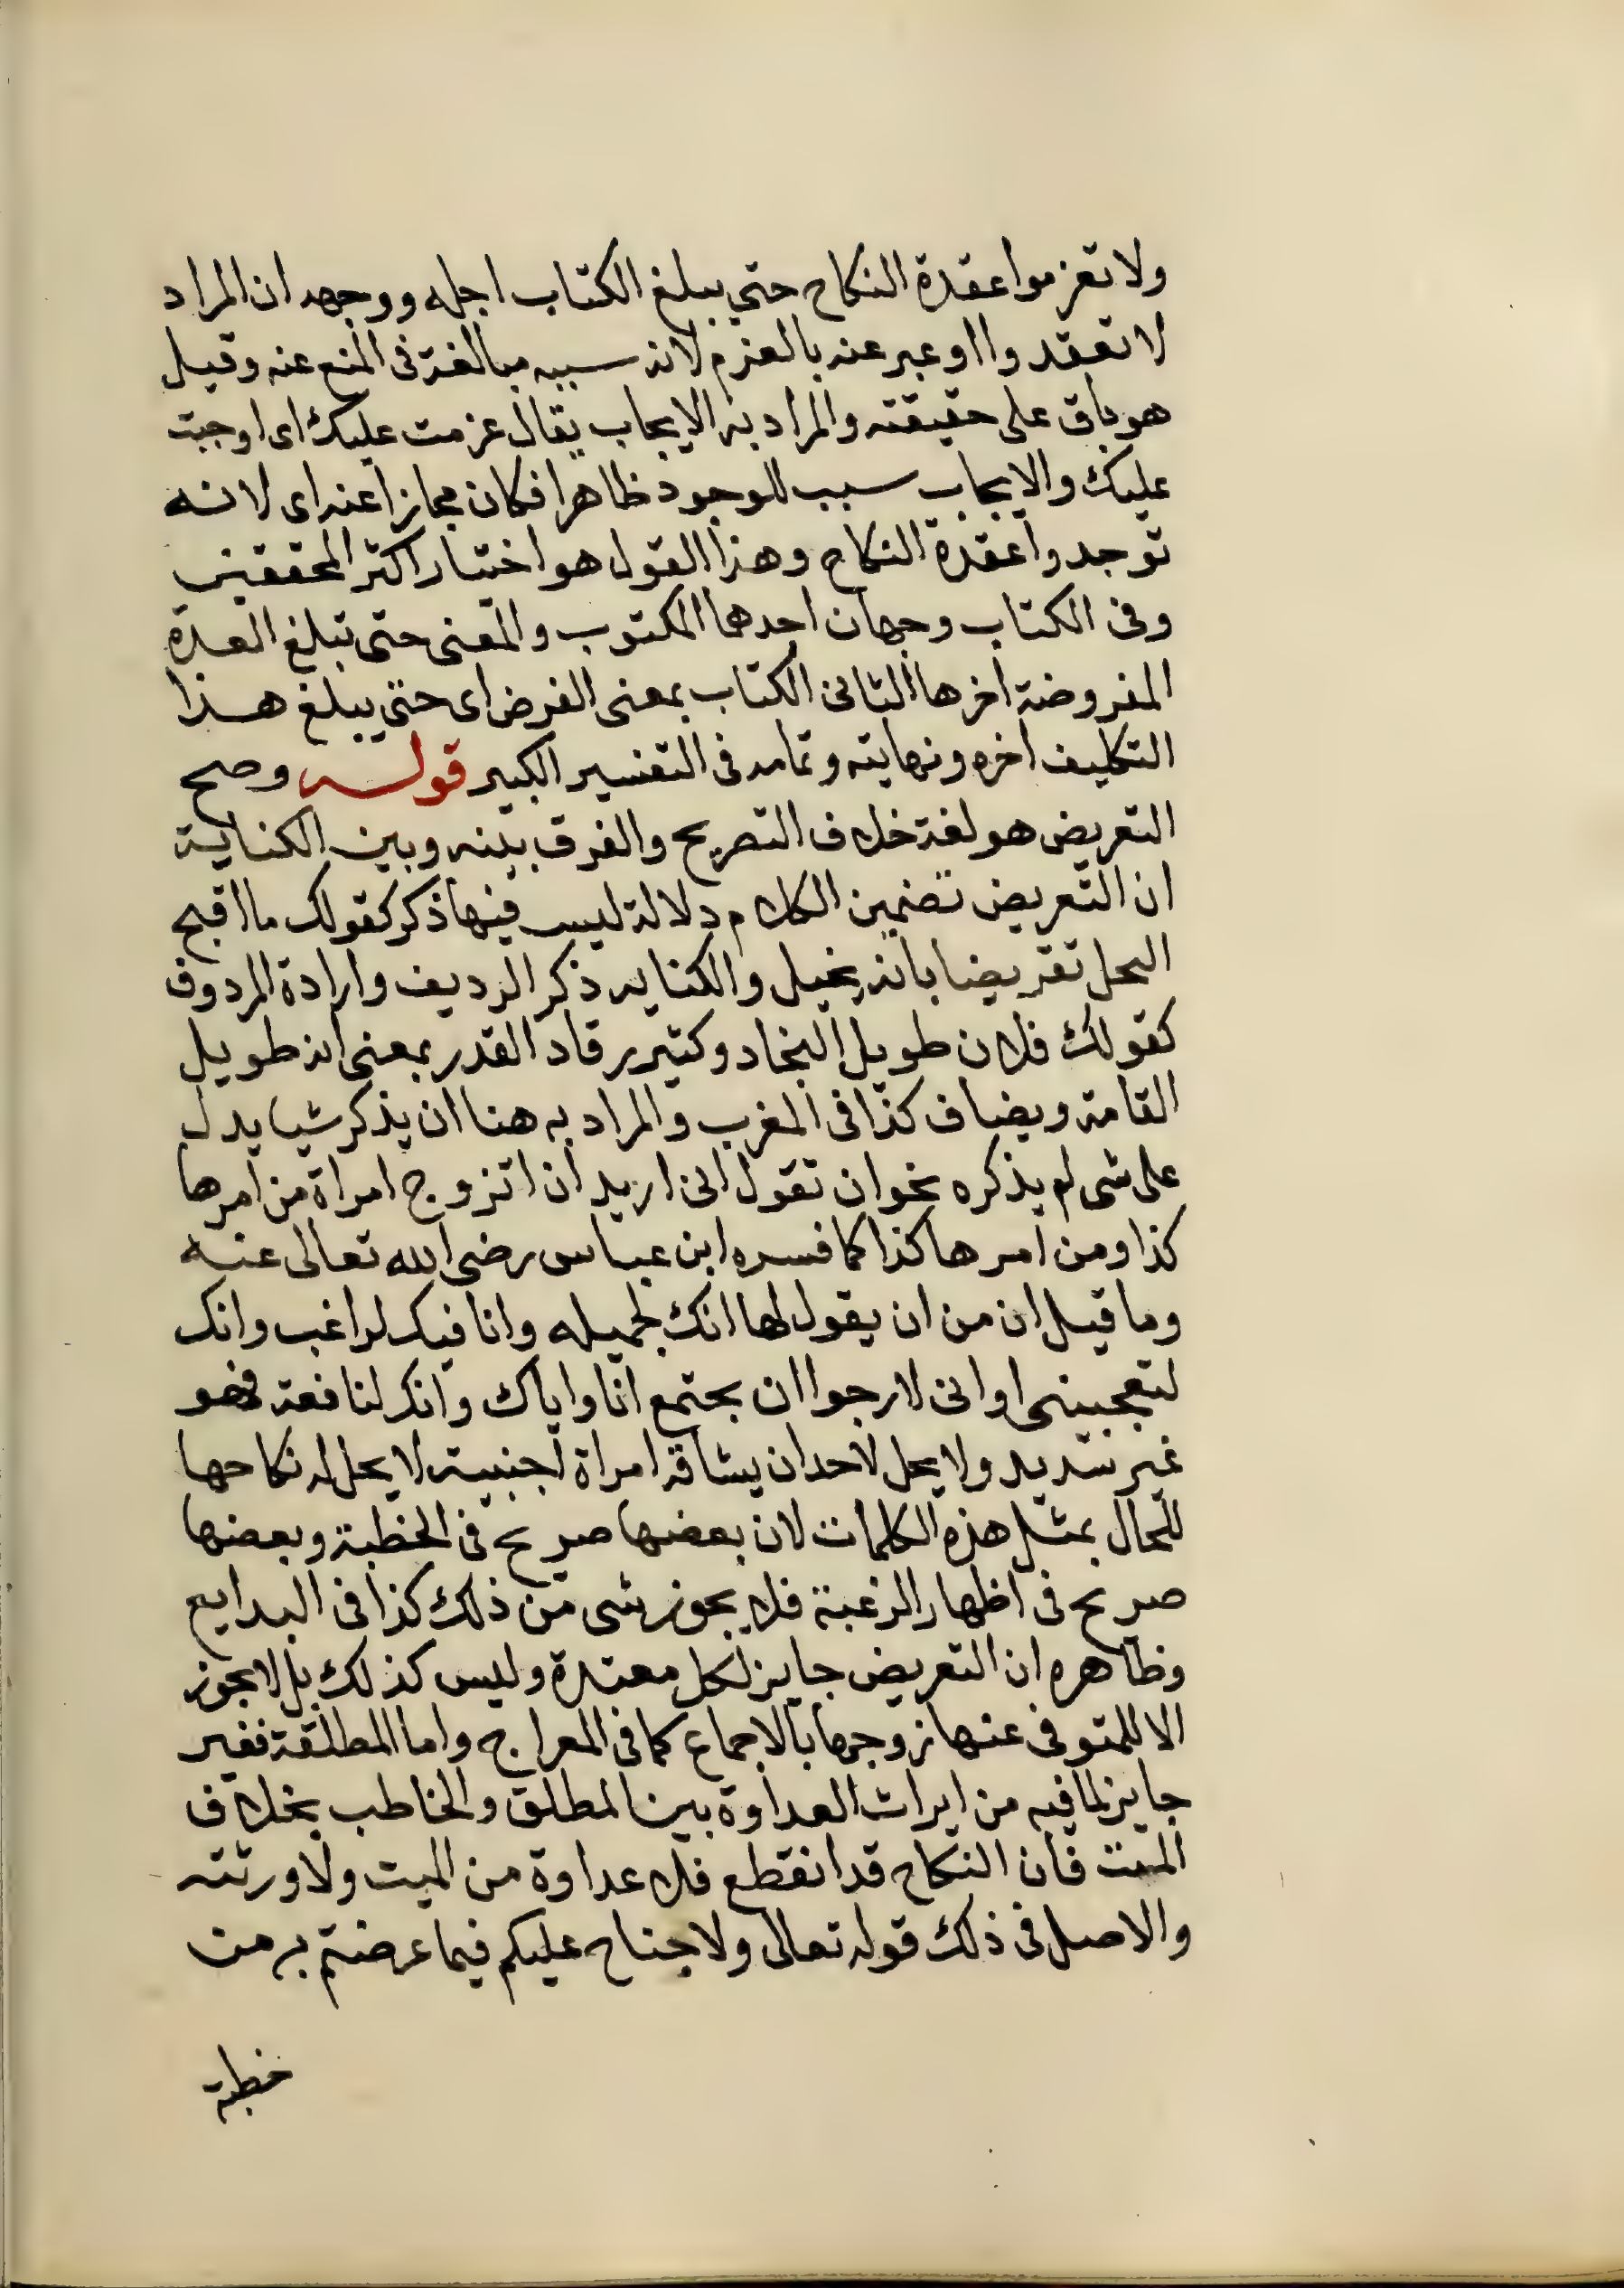 ولا تعزموا عقدة النكاح حتي يبلغ الكتاب اجله ووجهه ان المراد
لا تعقدوا او عبر عنه بالعزم لانه سببه مبالغة فى المنع عنه وقيل
هو باق على حقيقته والمراد به الايجاب يقال عزمت عليك اى اوجبت
عليك والايجاب سبب للوجود ظاهرا فكان مجازا عنه اى لانه
توجدوا عقدة النكاح وهذا القول هو اختيار اكثر المحققين
وفى الكتاب وجهان احدهما المكتوب والمعنى حتى تبلغ العدة
المفروضة اخرها الثانى الكتاب بمعنى الفرض اى حتى يبلغ هذا
التكليف اخره ونهايته وتمامه فى التفسير الكبير قوله وصح
التعريض هو لغة خلاف التصريح والفرق بينه وبين الكناية
ان التعريض تضمين الكلام دلالة ليس فيها ذكر كقولك ما اقبح
البخل تعريضا بانه بخيل والكنايه ذكر الرديف وارادة المردوف
كقولك فلان طويل النجاد وكثير رقاد القدر بمعنى انه طويل
القامة ويضاف كذا فى المغرب والمراد به هنا ان يذكر شيا يدل
على شى لم يذكره نحو ان تقول انى اريد ان اتزوج امراة من امرها
كذا ومن امرها كذا كما فسره ابن عباس رضى الله تعالى عنه
وما قيل ان من ان يقول لها انك لجميله وانا فيك لراغب وانك
لتعجبينى او انى لارجوا ان يجتمع انا واياك وانك لنافعة فهو
غير سديد ولا يحل لاحد ان يشافه امراة اجنبية لا يحل له نكاحها
للحال بمثل هذه الكلمات لان بعضها صريح فى الخطبة وبعضها
صريح فى اظهار الرغبة فلا يجوز شى من ذلك كذا فى البدايع
وظاهره ان التعريض جايز لكل معتدة وليس كذلك بل لا يجوز
الا للمتوفى عنها زوجها بالاجماع كما فى المعراج واما المطلقة فغير
جايز لما فيه من ايراث العداوة بين المطلق والخاطب بخلاف
الميت فان النكاح قد انقطع فلا عداوة من الميت ولا ورثته
والاصل فى ذلك قوله تعالى ولا جناح عليكم فيما عرضتم به من
خطبة